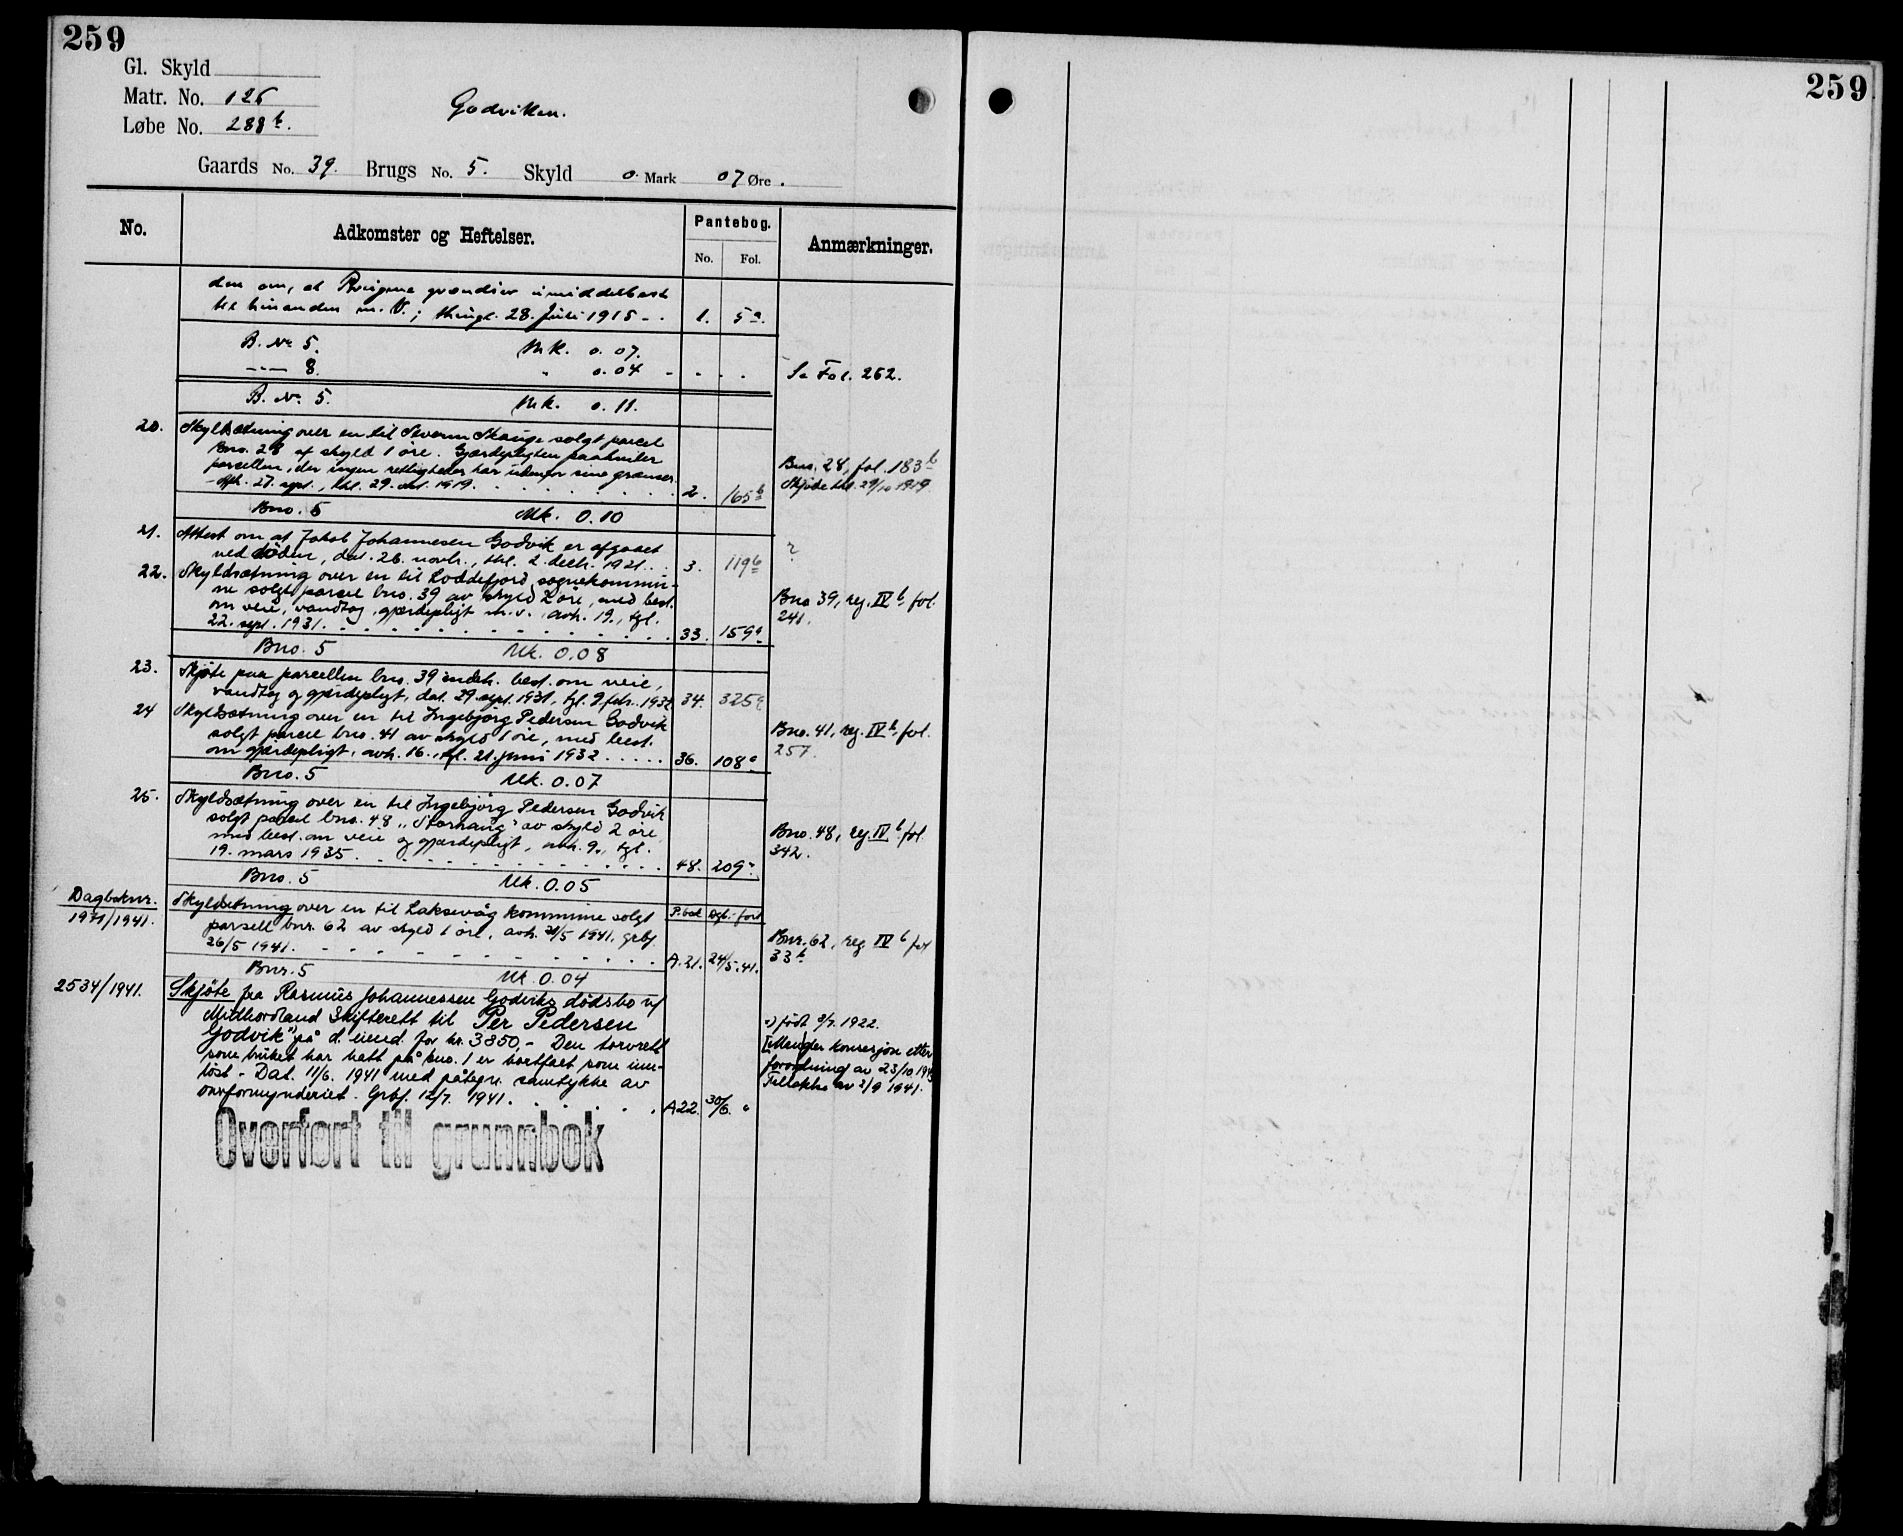 259
Gl. Skyld
Matr. No. 126
Løbe No. 288 b.
Godviken.
Gaards No. 39. Brugs No. 5. Skyld 0. Mark 07 Øre.
No. Adkomster og Heftelser. Pantebog. Anmærkninger.
No. Fol.
den om, at grændser umiddelbart
til hinanden m. V.; thingl. 28. Juli 1915 - . 1. 5 a.
B. No 5. Mk. 0. 07.
-"- 8. " 0. 04 - - - - Se Fol. 262.
B. No. 5. Mk. 0. 11.
20. Skyldsætning over en til Severin Skauge solgt parcel
Bno. 28 af skyld 1 öre. Gjærdepligten paahviler
parcellen, der ingen rettigheder har udenfor sine grænser
- Afh. 27. sept., thl. 29. okt. 1919. . . . . . . . 2. 165 b
Bno. 28, fol. 183 b
Skjöde thl. 29/10 1919
Bno. 5 Mk. 0.10
21. Attest om at Jakob Johannesen Godvik er afgaaet
ved döden, dat. 26. novbr., thl. 2. decbr. 1921. . . 3. 119 b
?
22. Skyldsætning over en til Loddefjord sognekommu-
ne solgt parcel bno. 39 av skyld 2 öre, med best.
om veie, vandtag, gjærdepligt m. v., avh. 19., tgl.
22. sept. 1931. - - - - - - - - 33. 159 a
Bno 39, reg. IV b fol.
241.
Bno. 5 Mk. 0.08
23. Skjöte paa parcellen bno. 39 indeh. best. om veie,
vandtag og gjærdepligt, dat. 29. sept. 1931, tgl. 9 febr. 1932 34. 325 a
24 Skyldsætning over en til Ingebjörg Pedersen Godvik
solgt parcel bno. 41 av skyld 1 öre, med best.
om gjærdepligt, avh. 16., tgl. 21. juni 1932 . . . . . 36. 108 a
Bno. 41, reg. IV b fol.
257.
Bno. 5 Mk. 0.07
25. Skyldsætning over en til Ingebjörg Pedersen Godvik
solgt parcel bno. 48 "Storhaug" av skyld 2 öre
med best. om veie og gjærdepligt, avh. 9., tgl.
19. mars 1935. - - - - - - - - 48. 209 a
Bno. 48, reg. IV b fol.
342.
Bno. 5 Mk. 0.05
Dagboknr.
1971/1941. Skyldsetning over en til Laksevåg kommune solgt P.bok Dgb.-fört
parsell bnr. 62 av skyld 1 öre, avh. 21/5 1941, grbf.
26/5 1941. - - - - - - - - A. 21. 24/5.41.
Bnr. 62, reg. IV b fol
33 b
Bnr. 5 Mk. 0.04
2534/1941. Skjöte fra Rasmus Johannessen Godviks dödsbo v/
Midhordland Skifterett til Per Pedersen
Godvik x) på d. eiend. for kr. 3850,- Den torvrett
som bruket har hatt på bno. 1 er bortfalt som inn-
löst. - Dat. 11/6. 1941 med påtegn. samtykke av
overformynderiet. Grbf. 12/7. 1941. . . . . . A22. 30/6. "
x) född 2/7. 1922.
[Mangler konsesjon etter
forordning av 23/10 1940
Tillakles av 2/9 1941.
Overført til grunnbok
259